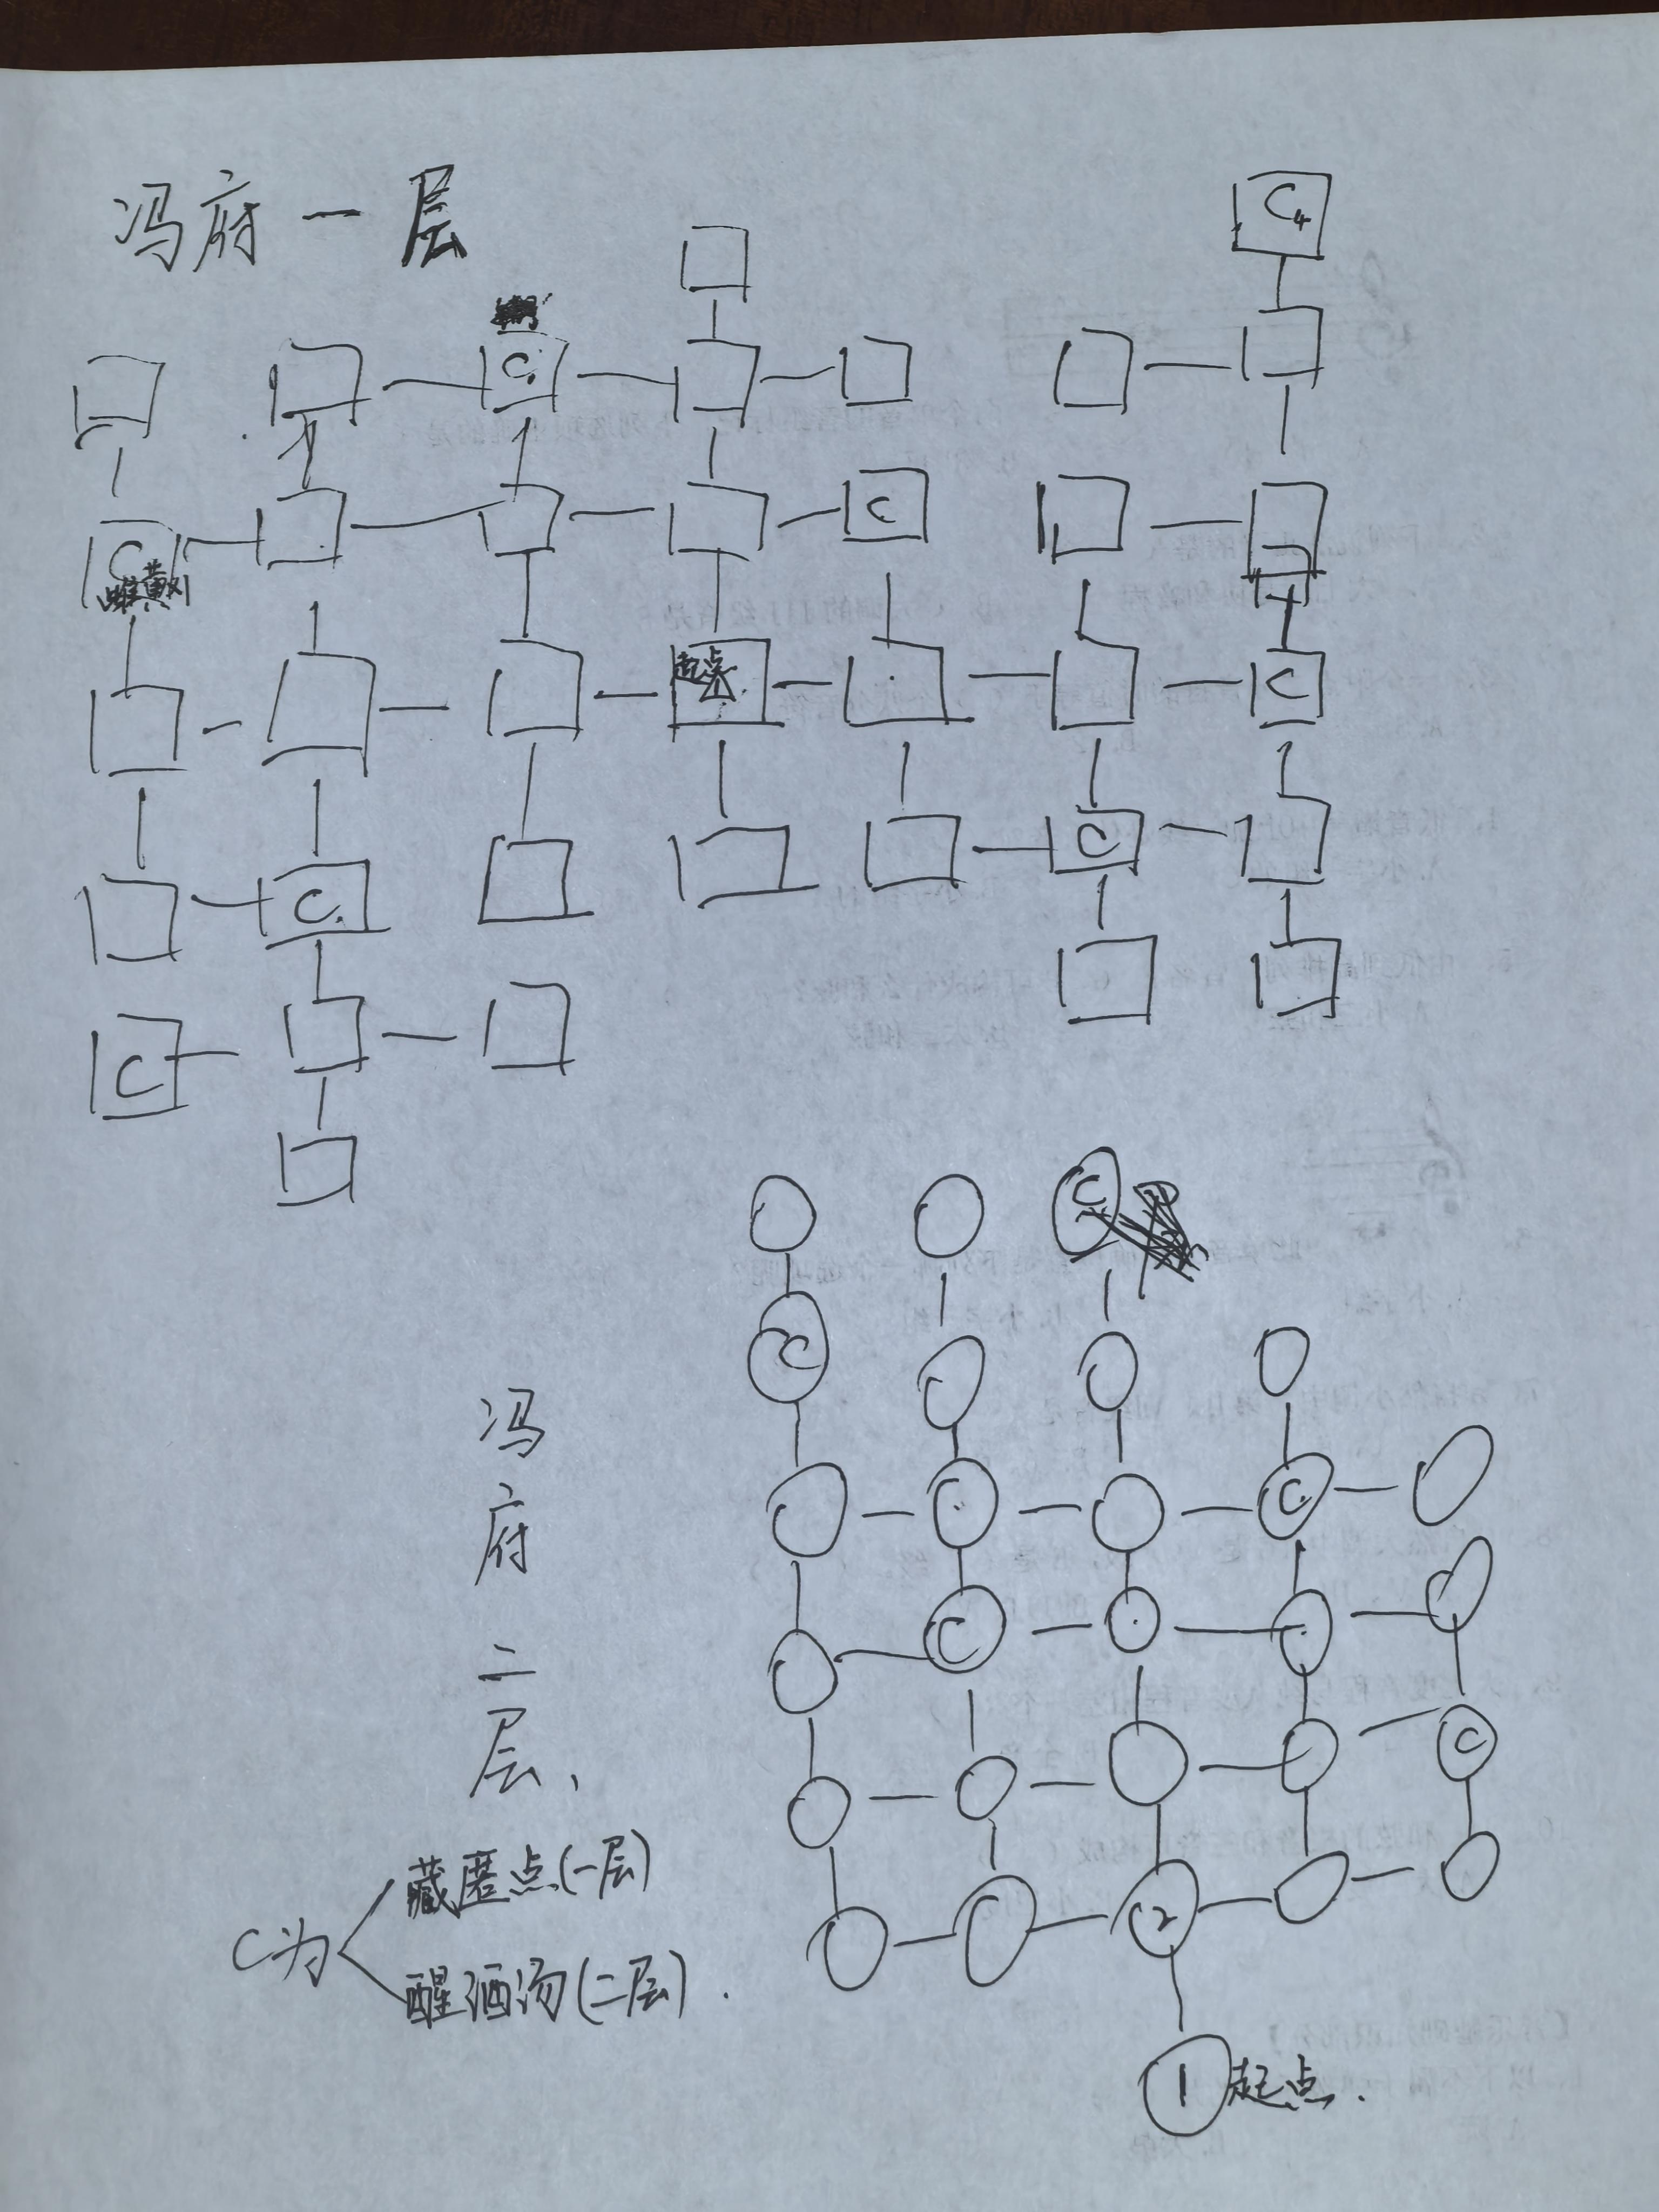 冯府一层
C4
C
C
C
雄黄
起点
C
C
C
C
C
C
C
C
C
冯府二层、
2
C为
藏匿点(一层)
醒酒汤(二层).
1 起点.